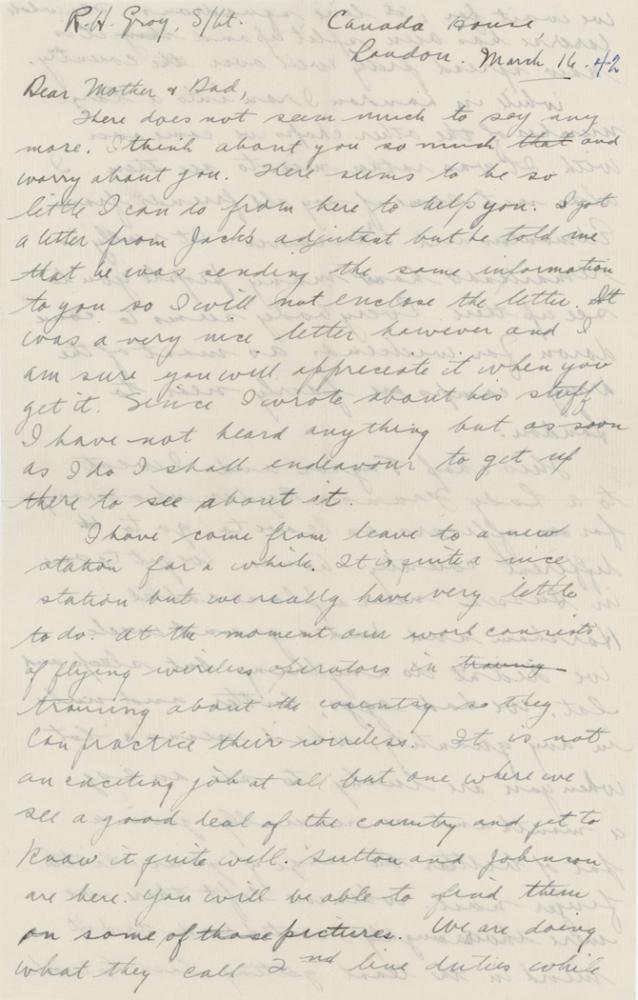 R.H. Gray, S/Lt. Canada House,
London. March 16. 42
Dear Mother & Dad,
There does not seem much to say any
more. I think about you so much that and
worry about you. There seems to be so
little I can do from here to help you. I got
a letter from Jack's adjutant but he told me
that he was sending the same information
to you so I will not enclose the letter. It
was a very nice letter however and I
am sure you will appreciate it when you
get it. Since I wrote about his stuff
I have not heard anything but as soon
as I do I shall endeavour to get up
there to see about it.
I have come from leave to a new
station for a while. It is quite a nice
station but we really have very little
to do. At the moment our work consists
of flying wireless operators in training
training about the country so they
can practice their wireless. It is not
an exciting job at all but one where we
see a good deal of the country and get to
know it quite well. Sutton and Johnson
are here. You will be able to find them
on some of those pictures. We are doing
what they call 2nd line duties while